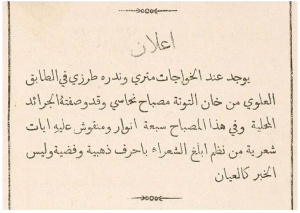 اعلان
يوجد عند الخواجات متري وندره طرزي في الطابق
العلوي من خان التوتة مصباح نحاسي وقد وصفتهُ الجرائد
المحلية وفي هذا المصباح سبعة انوار ومنقوش عليهِ ايات
شعرية من نظم ابلغ الشعراء باحرف ذهبية وفضية وليس
الخبر كالعيان